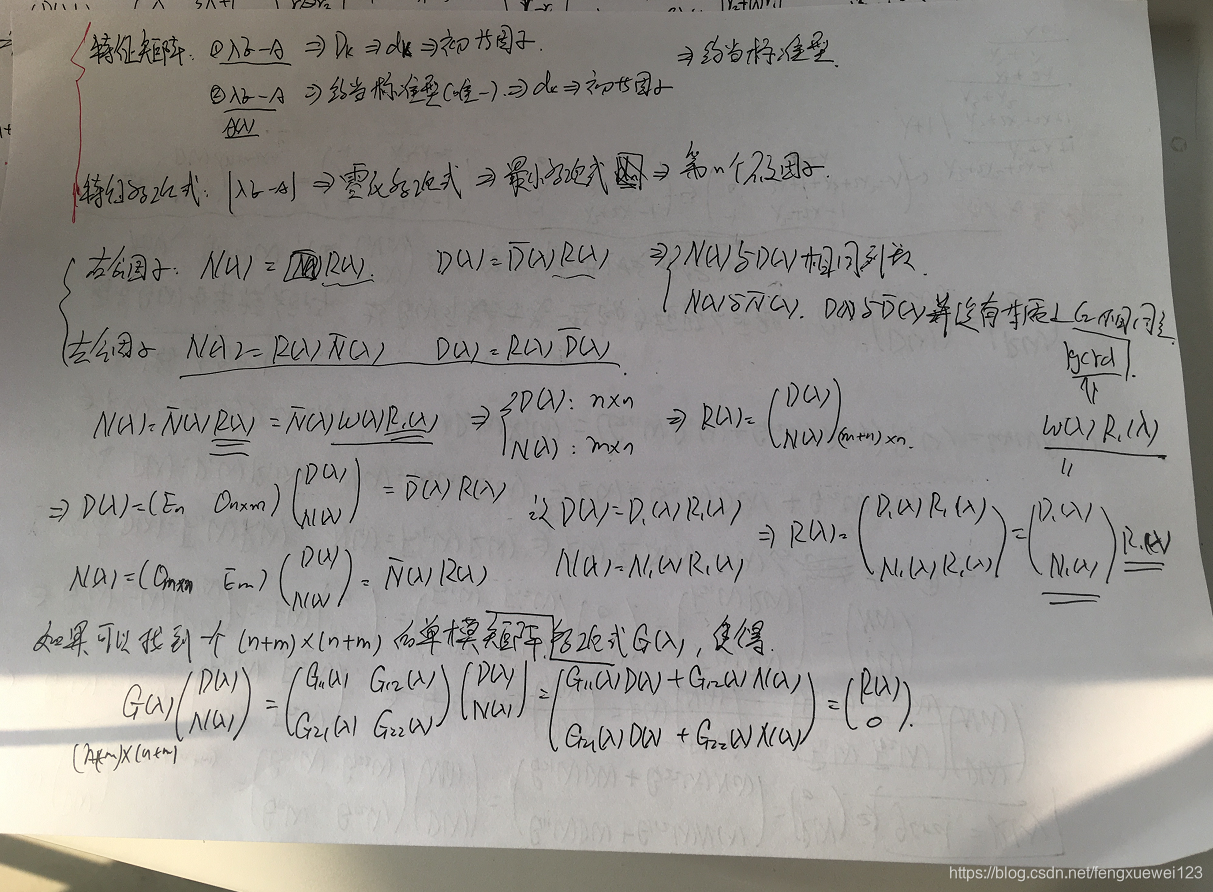 特征矩阵: ① λE-A ⇒ Dk ⇒ dk ⇒ 初等因子. ⇒ 约当标准型.
② λE-A ⇒ 约当标准型(唯一). ⇒ dk ⇒ 初等因子
A(λ)
特征多项式: |λE-A| ⇒ 零化多项式 ⇒ 最小多项式 ⇒ 第n个不变因子.
右公因子: N(λ) = R(λ). D(λ)=D̅(λ)R(λ) ⇒ { N(λ)与D(λ)相同列数.
N(λ)与N̅(λ). D(λ)与D̅(λ)并没有本质上的不同之
左公因子 N(λ)=R(λ)N̅(λ) D(λ)=R(λ)D̅(λ).
gcrd.
N(λ)=N̅(λ)R(λ)=N̅(λ)W(λ)R₁(λ) ⇒ { D(λ): n×n N(λ): m×n ⇒ R(λ)=(D(λ) N(λ))(m+n)×n. W(λ)R₁(λ)
⇒ D(λ)=(En On×m)(D(λ) N(λ)) = D̅(λ)R(λ) 设 D(λ)=D₁(λ)R₁(λ) ⇒ R(λ)=(D₁(λ)R₁(λ) N₁(λ)R₁(λ))=(D₁(λ) N₁(λ))R₁(λ)
N(λ)=(Om×n Em)(D(λ) N(λ)) = N̅(λ)R(λ) N(λ)=N₁(λ)R₁(λ)
如果可以找到一个 (n+m)×(n+m) 的单模矩阵多项式G(λ), 使得.
G(λ)(D(λ) N(λ)) = (G₁₁(λ) G₁₂(λ) G₂₁(λ) G₂₂(λ))(D(λ) N(λ)) = (G₁₁(λ)D(λ)+G₁₂(λ)N(λ) G₂₁(λ)D(λ)+G₂₂(λ)N(λ)) = (R(λ) 0).
(n+m)×(n+m)
https://blog.csdn.net/fengxuewei123